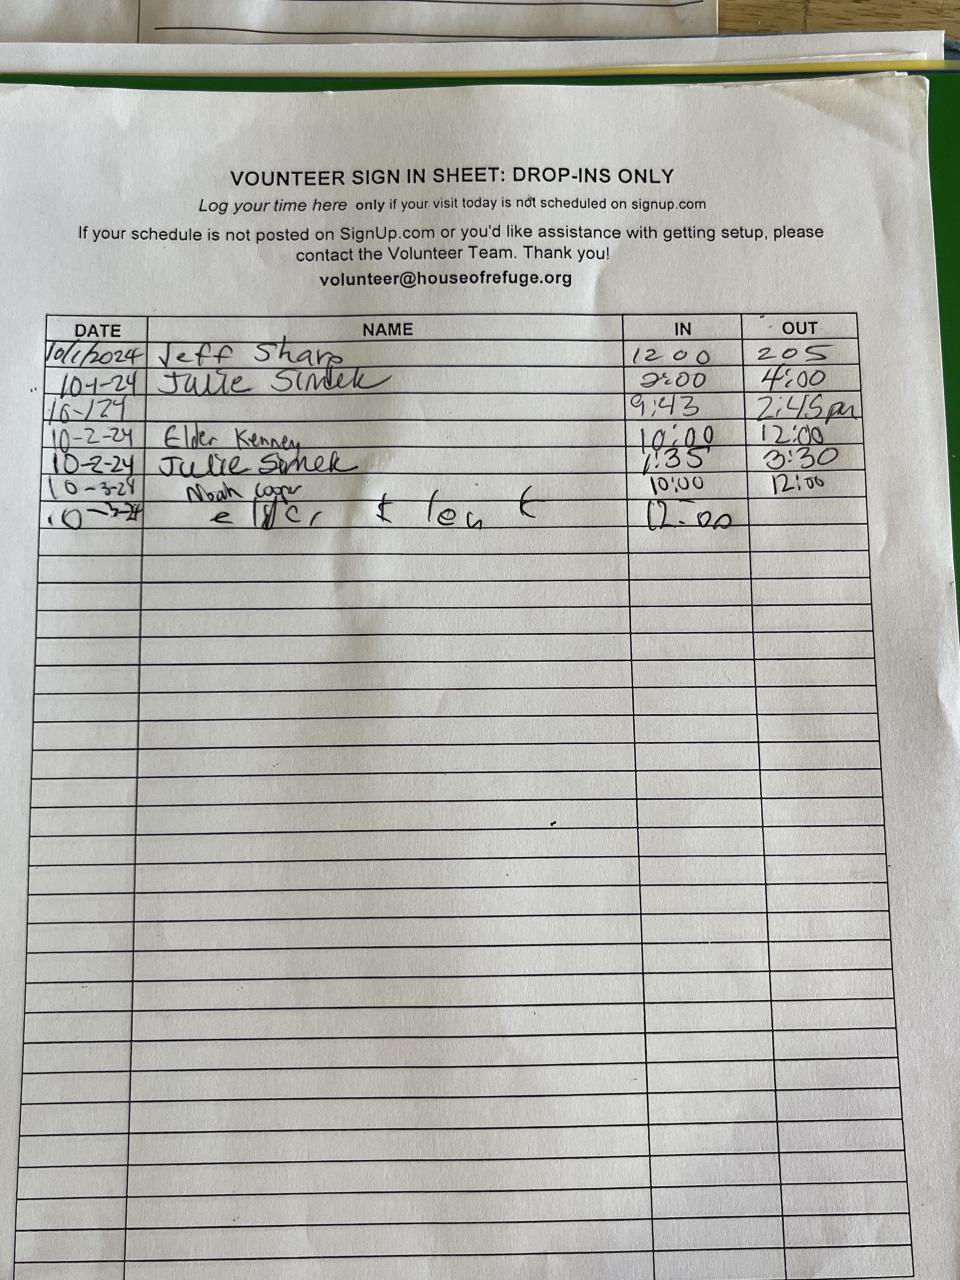 VOUNTEER SIGN IN SHEET: DROP-INS ONLY
Log your time here only if your visit today is not scheduled on signup.com
If your schedule is not posted on SignUp.com or you'd like assistance with getting setup, please
contact the Volunteer Team. Thank you!
volunteer@houseofrefuge.org
DATE NAME IN OUT
10/1/2024 Jeff Sharp 12 00 2 05
10-1-24 Julie Simek 2:00 4:00
10-1 24 9:43 2:45pm
10-2-24 Elder Kenney 10:00 12:00
10-2-24 Julie Simek 1:35 3:30
10-3-24 Noah 10:00 12:00
10-3-24 12:00